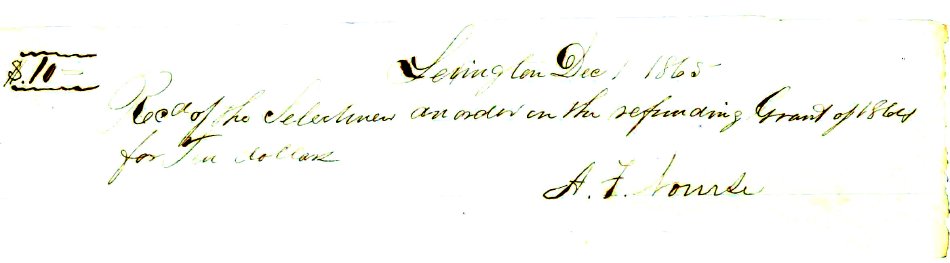 $.10= Lexington Dec 1 1865
Recd of the Selectmen an order on the refunding Grant of 1864
for Ten dollars
A. F. Nourse